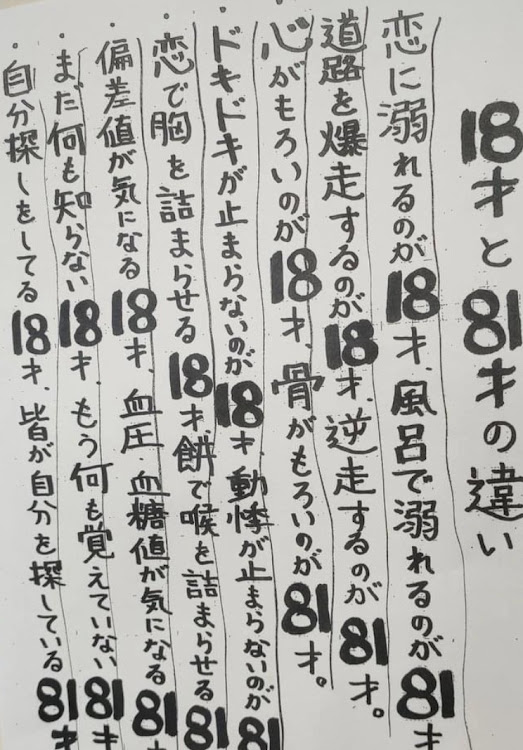 18才と81才の違い
恋に溺れるのが18才、風呂で溺れるのが81才
道路を爆走するのが18才、逆走するのが81才。
心がもろいのが18才、骨がもろいのが81才。
ドキドキが止まらないのが18才、動悸が止まらないのが81
恋で胸を詰まらせる18才、餅で喉を詰まらせる81
偏差値が気になる18才、血圧血糖値が気になる81才
まだ何も知らない18才、もう何も覚えていない81才
自分探しをしてる18才、皆が自分を探している81才